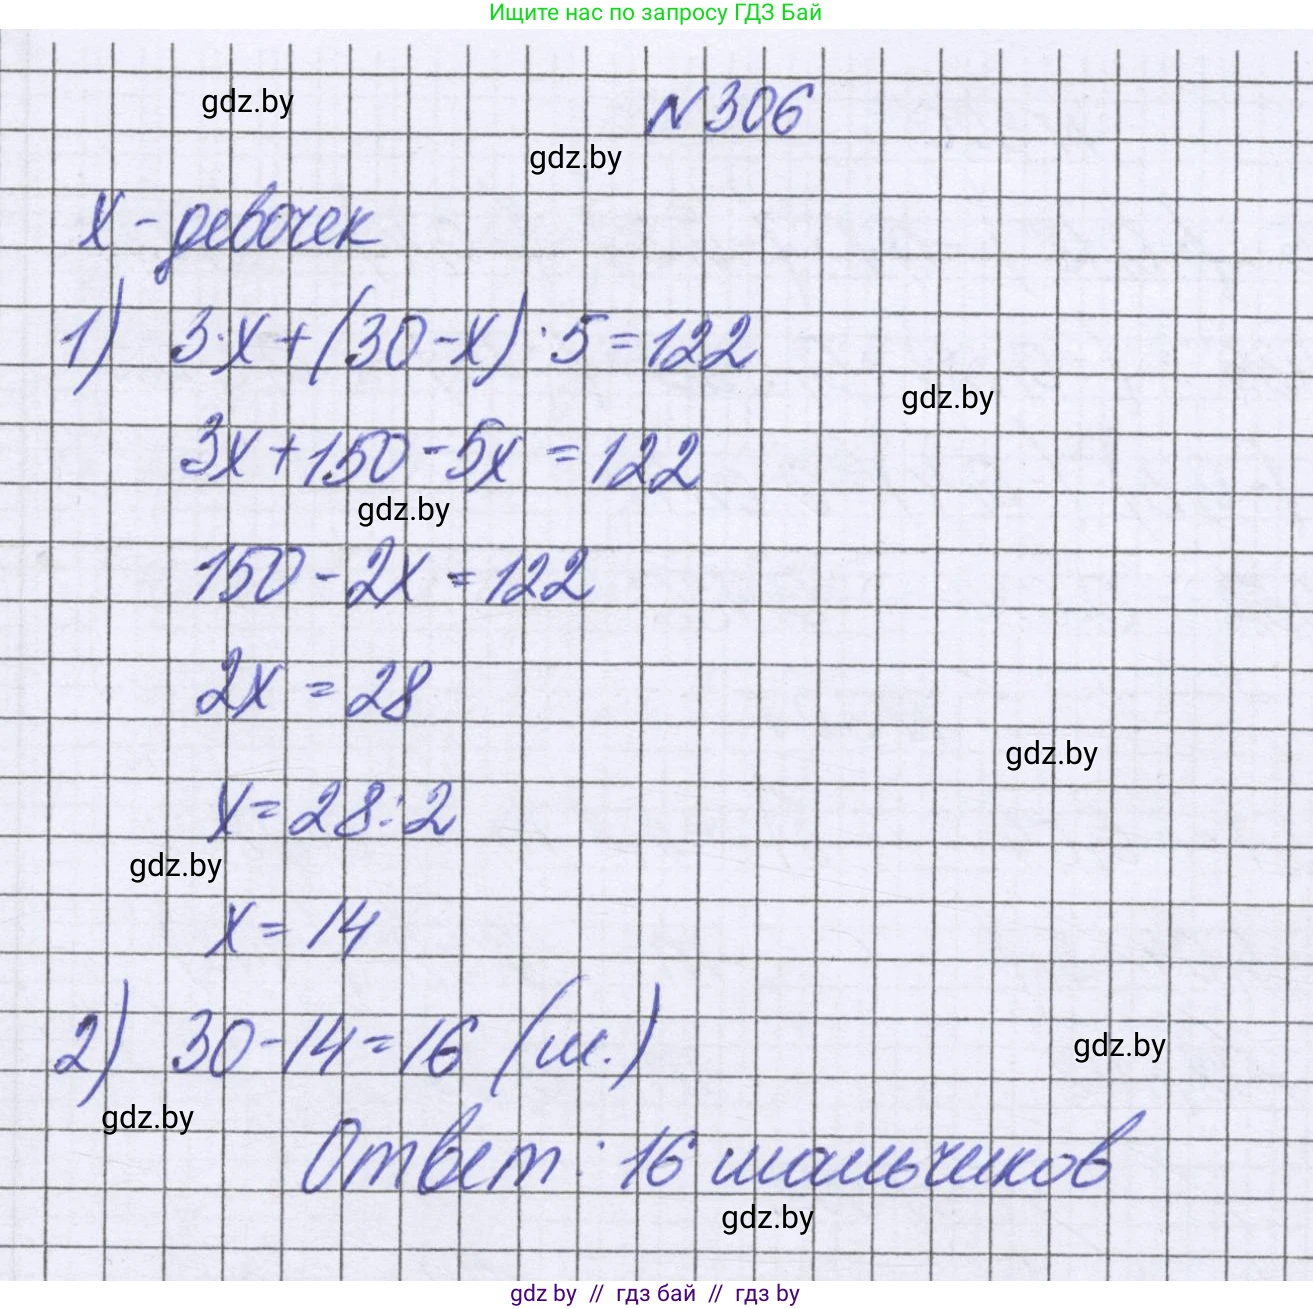 Ищите нас по запросу ГДЗ Бай
gdz.by
N 306
gdz.by
x - девочек
1) 3·x+(30-x)·5=122
gdz.by
3x+150-5x=122
gdz.by
150-2x=122
2x=28
gdz.by
x=28:2
gdz.by
x=14
2) 30-14=16 (м.)
gdz.by
gdz.by
Ответ: 16 мальчиков
gdz.by
gdz by // гдз бай // гдз by